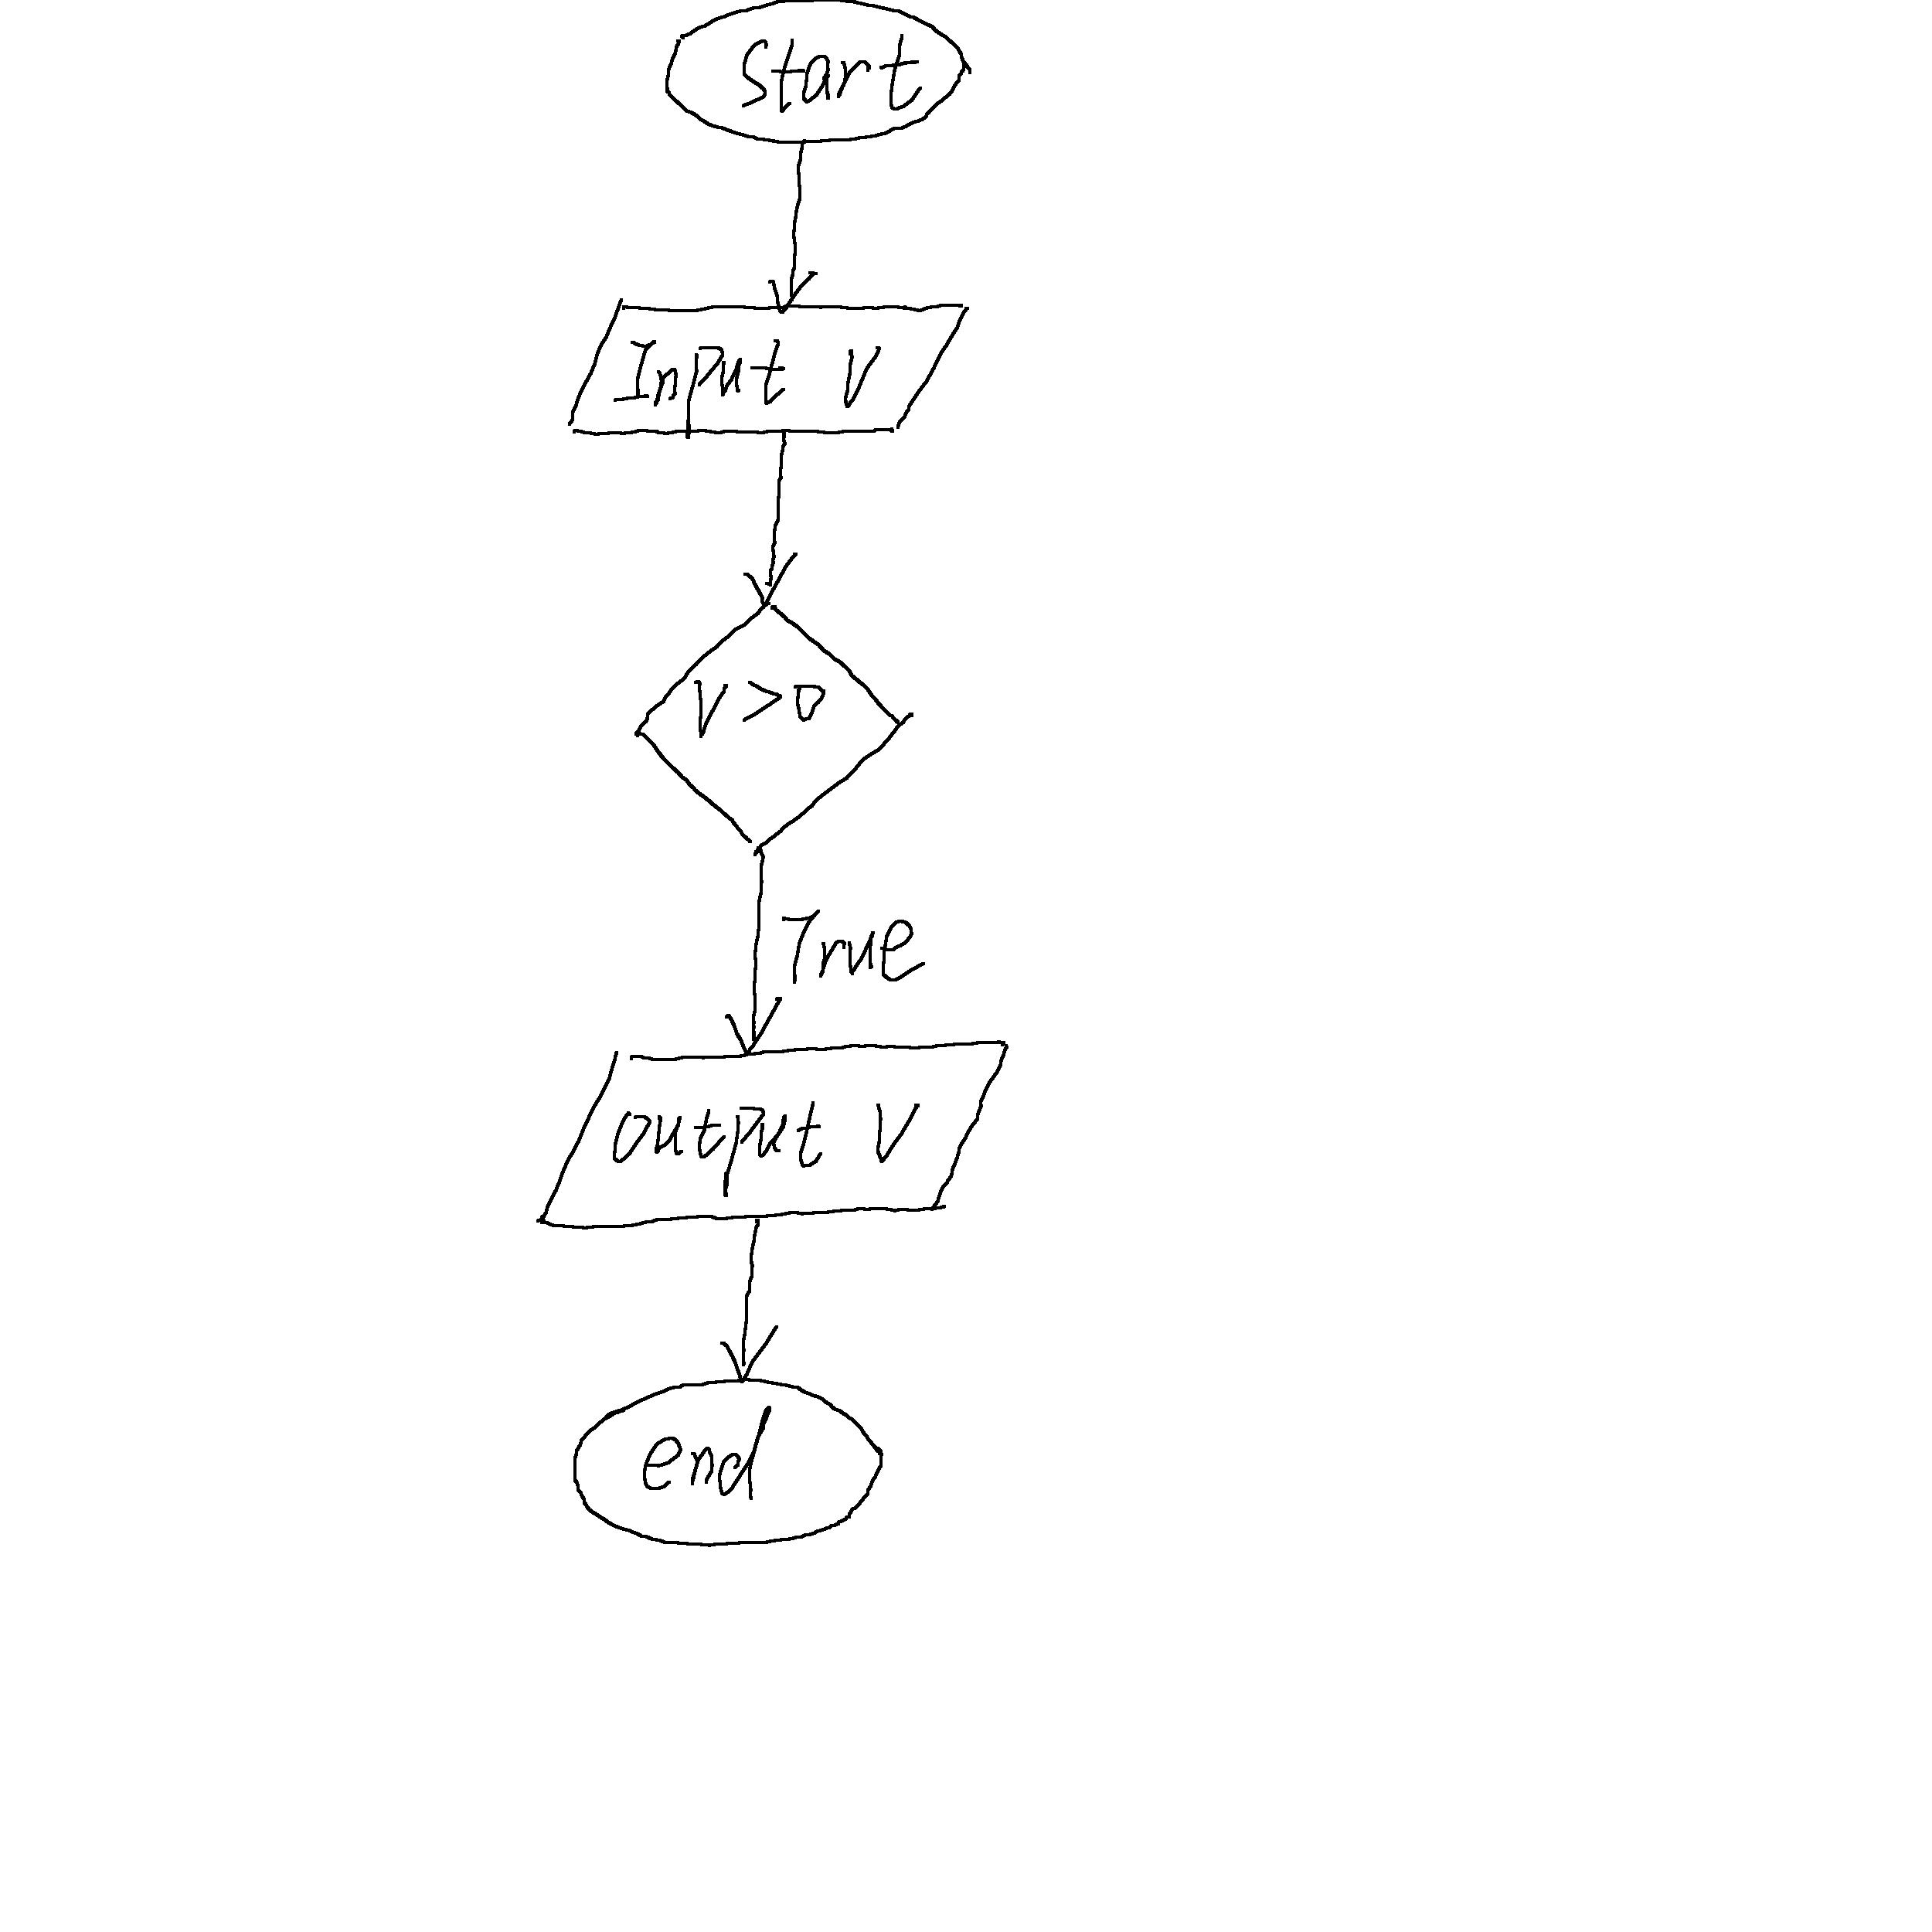 start
Input V
V>0
True
output V
end